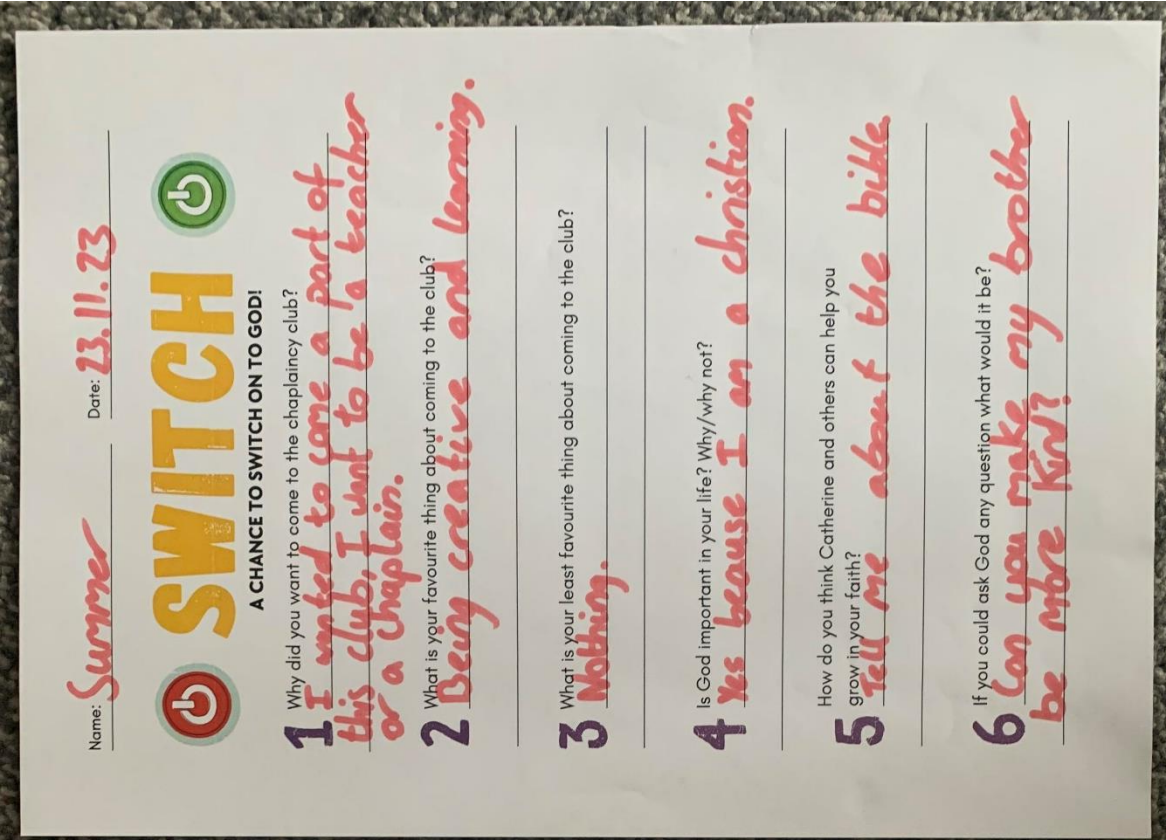 Name: Summer Date: 23.11.23
SWITCH
A CHANCE TO SWITCH ON TO GOD!
1 Why did you want to come to the chaplaincy club?
I wanted to come a part of
this club, I want to be a teacher
or a chaplain.
2 What is your favourite thing about coming to the club?
Being creative and learning.
3 What is your least favourite thing about coming to the club?
Nothing.
4 Is God important in your life? Why/why not?
Yes beause I am a christian.
5 How do you think Catherine and others can help you
grow in your faith?
Tell me about the bible
6 If you could ask God any question what would it be?
Can you make my brother
be more Kind?